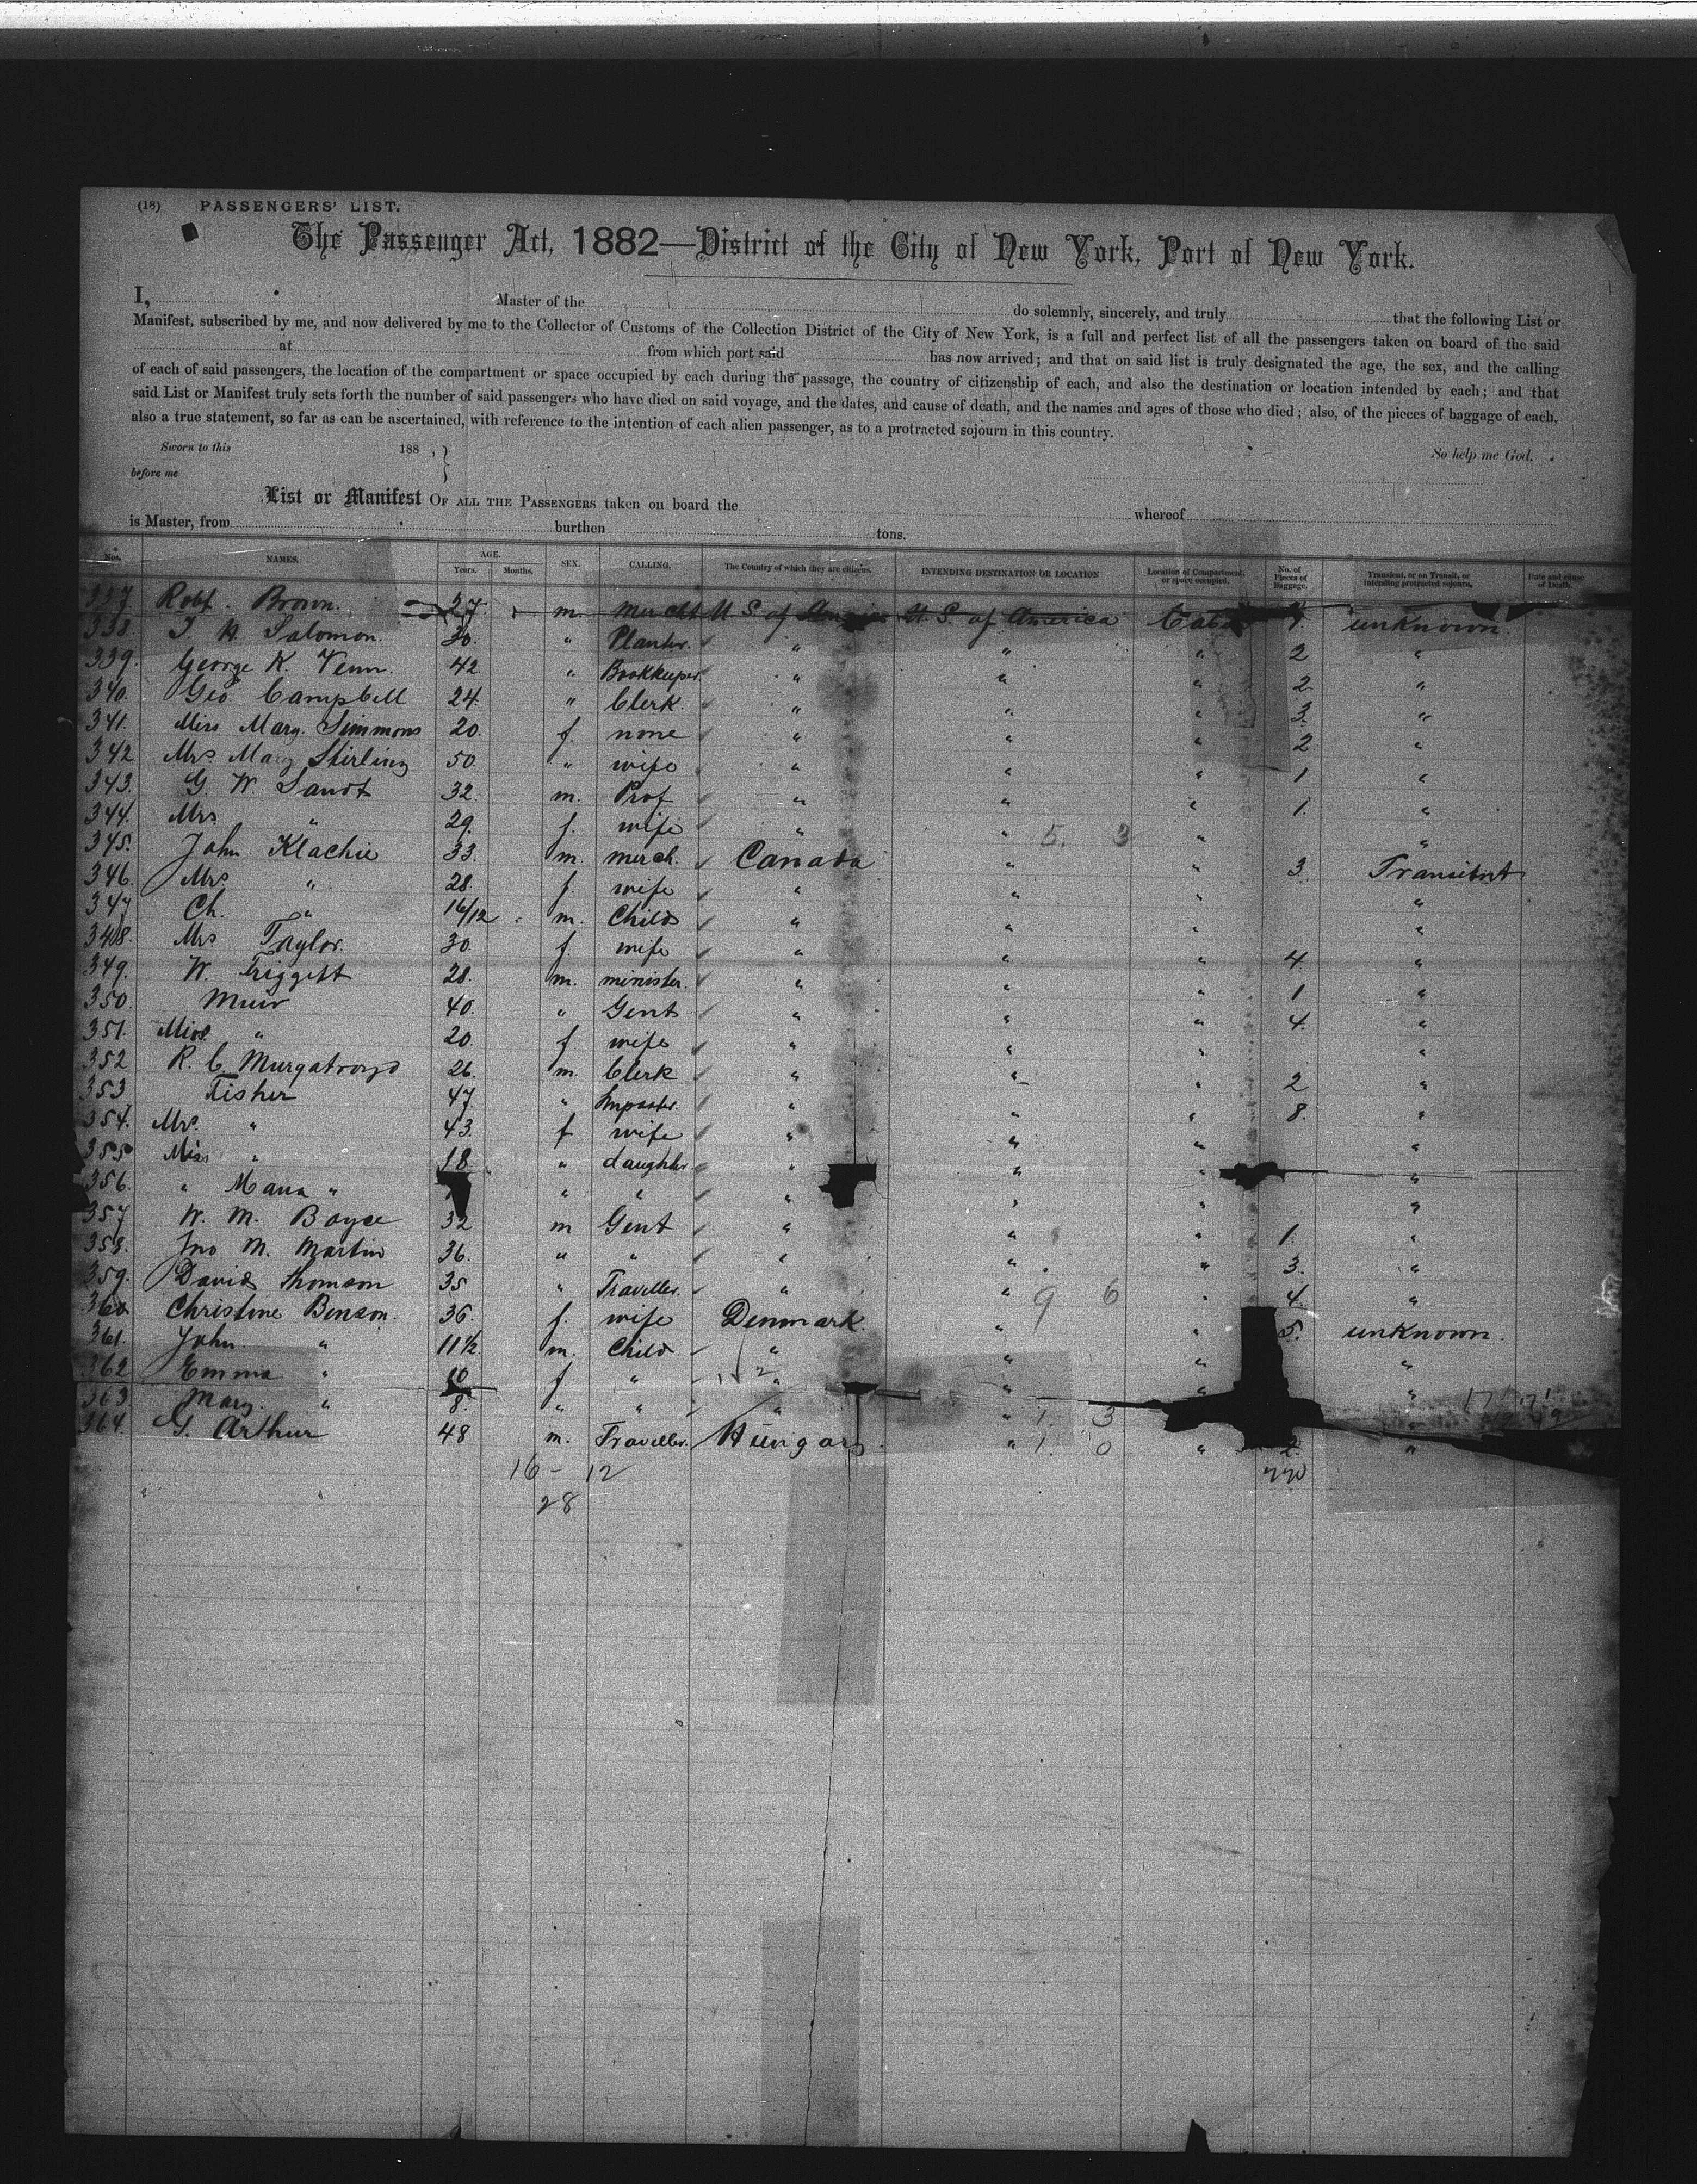 (18) PASSENGERS' LIST.
The Passenger Act, 1882—District of the City of New York, Port of New York.
I, Master of the do solemnly, sincerely, and truly that the following List or
Manifest, subscribed by me, and now delivered by me to the Collector of Customs of the Collection District of the City of New York, is a full and perfect list of all the passengers taken on board of the said
at from which port said has now arrived; and that on said list is truly designated the age, the sex, and the calling
of each of said passengers, the location of the compartment or space occupied by each during the passage, the country of citizenship of each, and also the destination or location intended by each; and that
said List or Manifest truly sets forth the number of said passengers who have died on said voyage, and the dates, and cause of death, and the names and ages of those who died; also, of the pieces of baggage of each,
also a true statement, so far as can be ascertained, with reference to the intention of each alien passenger, as to a protracted sojourn in this country.
Sworn to this 188 , } So help me God.
before me
List or Manifest OF ALL THE PASSENGERS taken on board the whereof
is Master, from burthen tons.
Nos. NAMES. AGE. Years. Months. SEX. CALLING. The Country of which they are citizens. INTENDING DESTINATION OR LOCATION Location of Compartment, or space occupied. No. of Pieces of Baggage. Transient, or on Transit, or intending protracted sojourn. Date and cause of Death.
337 Robt. Brown. 27 m. Mercht U.S. of America U.S. of America 1. unknown
338. Salomon. 30. " Planter. " " " 2 "
339. George K. Venn. 42 " Bookkeeper. " " " 2 "
340. Geo Campbell 24 " Clerk. " " " 3 "
341. Miss Mary. Simmons 20. f. none " " " 2 "
342 Mrs Mary Stirling 50. " wife " " " 1 "
343. G. W. Sandt 32. m. Prof " " " 1. "
344. Mrs " 29. f. wife " " 5. 3 " "
345. John Klachie 33. m. merch. Canada " " 3. Transitnt
346. Mrs " 28. f. wife " " " "
347 Ch. " 16/12 m. Child " " " "
348. Mrs Taylor. 30. f. wife " " " 4. "
349. W. Triggett 28. m. minister. " " " 1 "
350. Muir 40. " Gent " " " 4. "
351. " 20. f. wife " " " "
352 R. C. Murgatroyd 26. m. Clerk " " " 2 "
353 Fisher 47. " Importer. " " " 8. "
354. Mrs. " 43. f wife " " " "
355 Miss " 18 " daughter " " " "
356. " Maria " " " " " " "
357 W. M. Boyce 32 m Gent " " " 1. "
358. Jno M. Martin 36. " " " " " 3. "
359. David Thomson 35 " Traveller. " " 9 6 " 4. "
360 Christine Benson. 36. f. wife Denmark. " " 5. unknown.
361. John. " 11½ m. Child " " " "
362 Emma " 10 f " " " " "
363 Mary. " 8. " " " " 1. 3 "
364. G. Arthur 48 m. Traveller. Hungary. " 1. 0 " 2. "
16 - 12 270
28